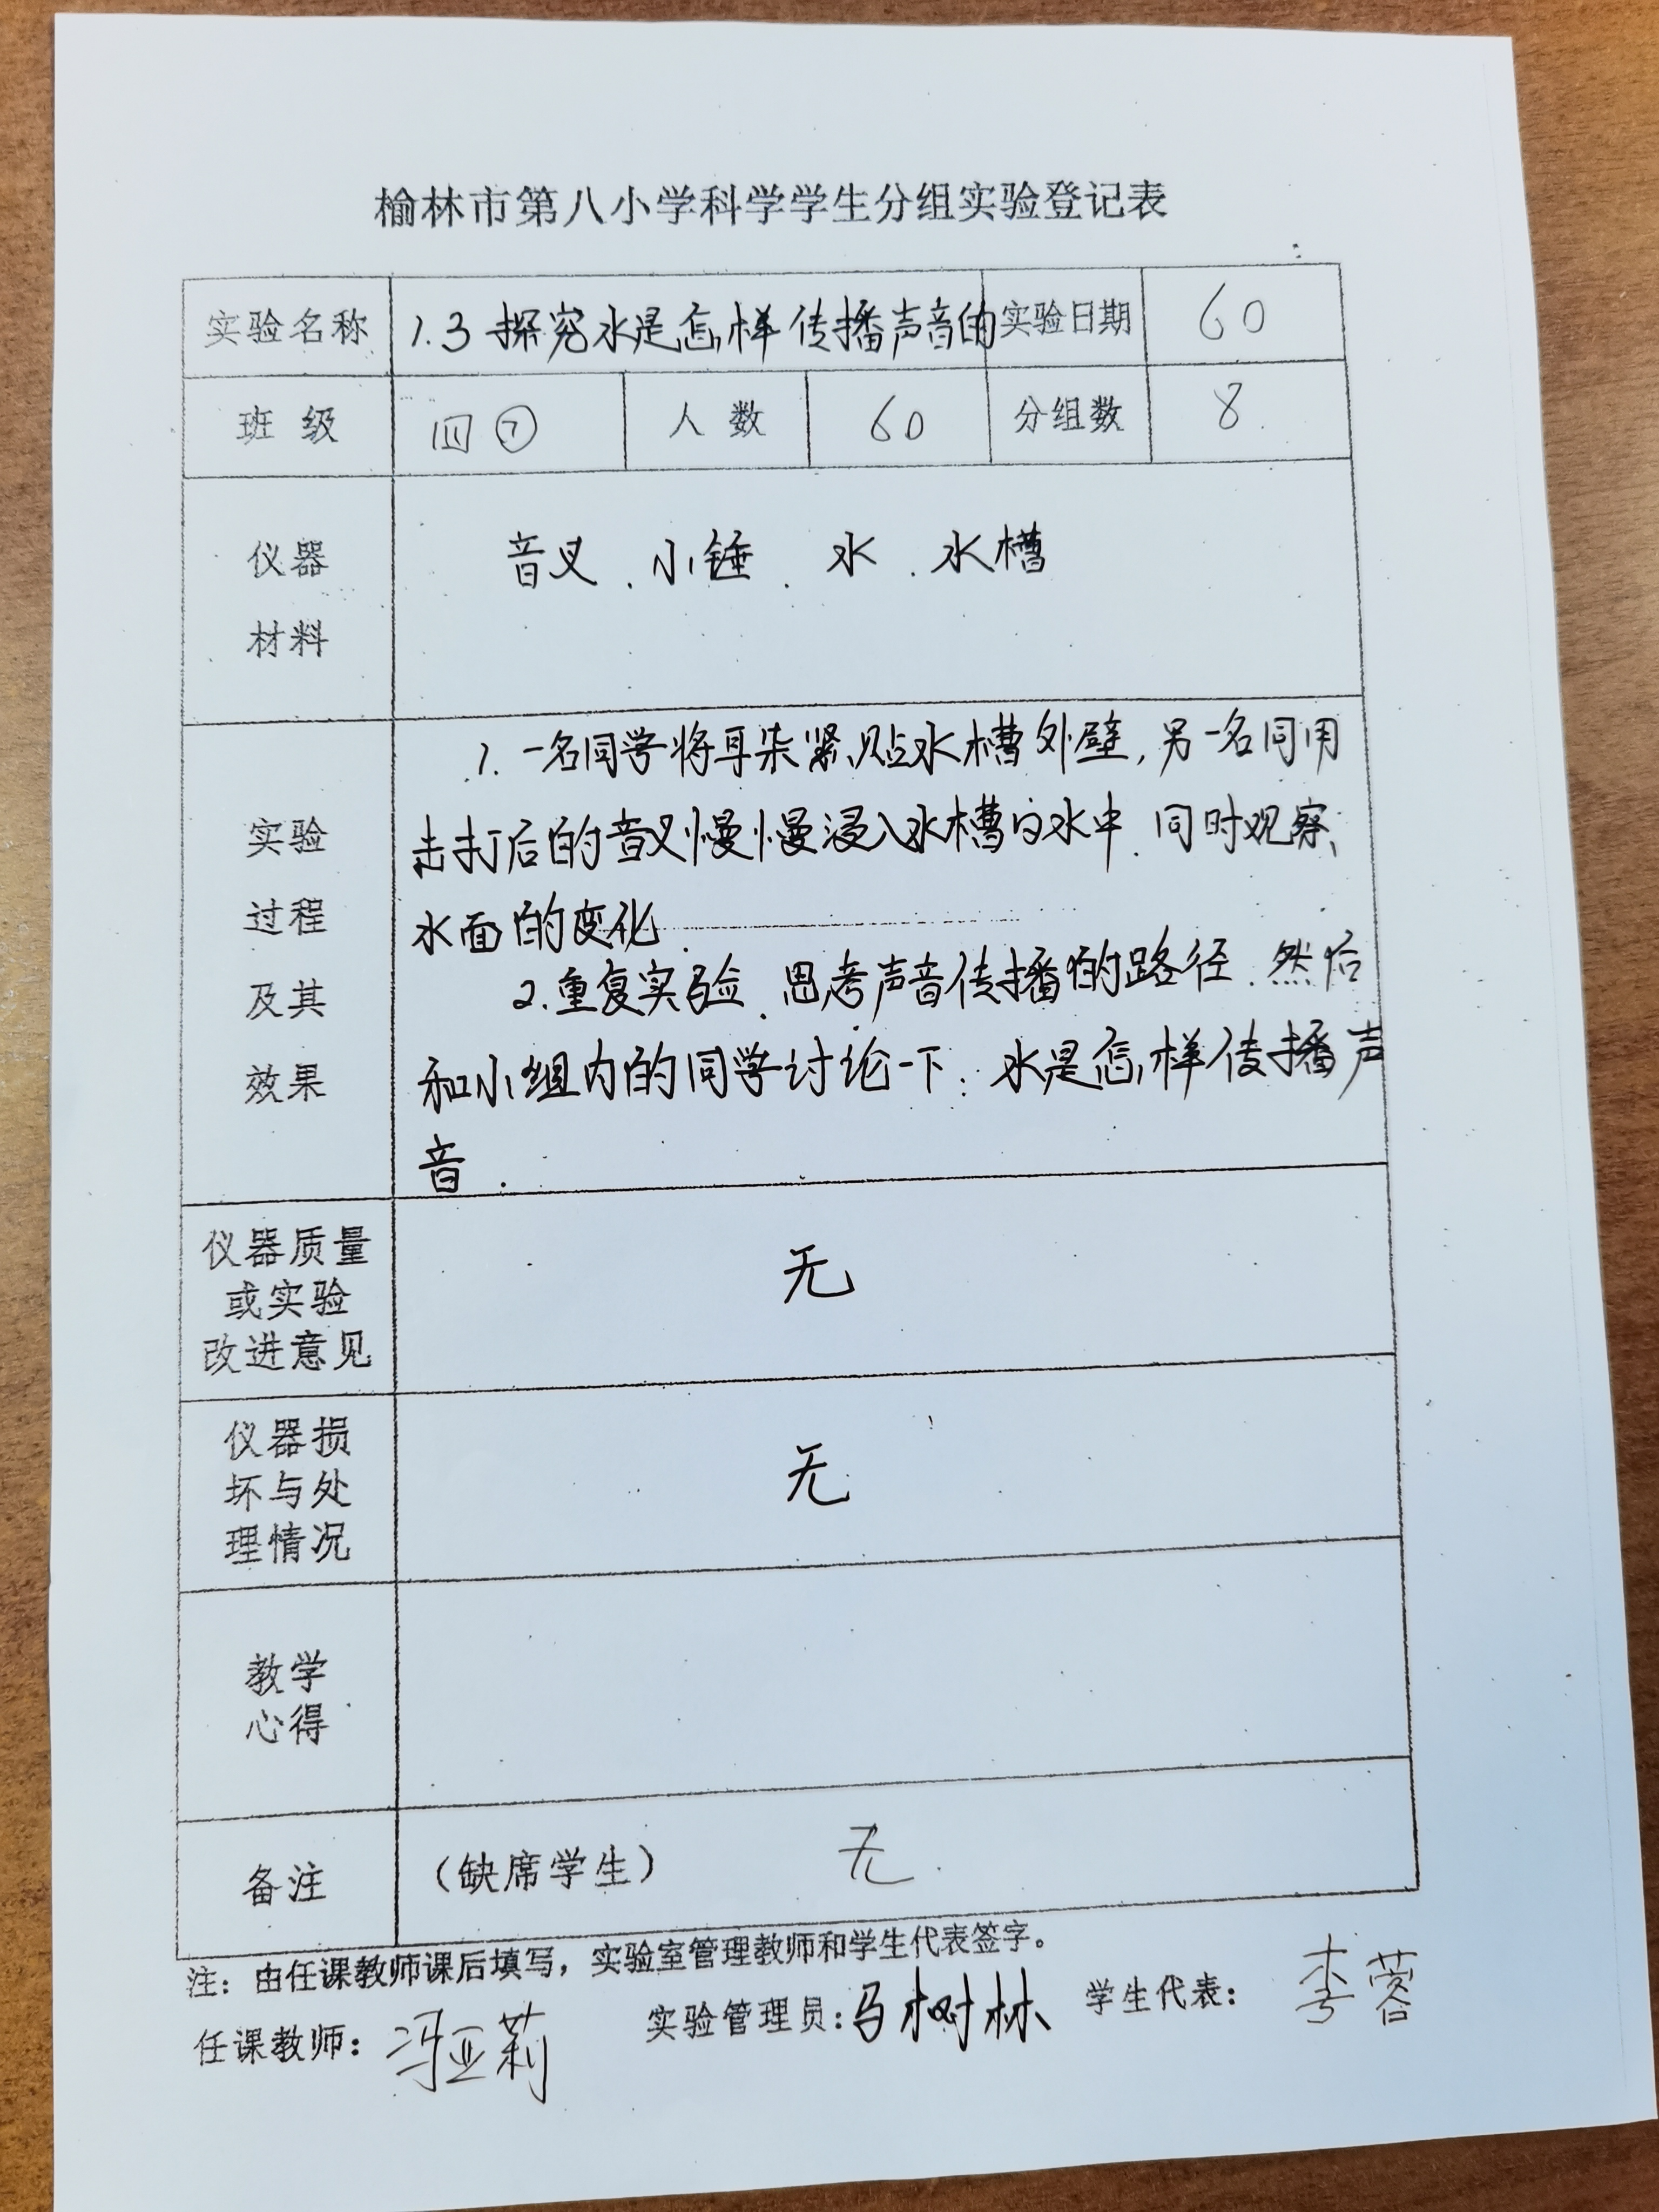 榆林市第八小学科学学生分组实验登记表
实验名称 1.3 探究水是怎样传播声音的 实验日期 60
班 级 四⑦ 人 数 60 分组数 8.
仪器
材料
音叉.小锤.水.水槽
实验
过程
及其
效果
1.一名同学将耳朵紧贴水槽外壁,另一名同用
击打后的音叉慢慢浸入水槽的水中.同时观察
水面的变化.
2.重复实验.思考声音传播的路径.然后
和小组内的同学讨论一下:水是怎样传播声
音.
仪器质量
或实验
改进意见
无
仪器损
坏与处
理情况
无
教学
心得
备注 (缺席学生) 无.
注:由任课教师课后填写,实验室管理教师和学生代表签字。
任课教师:冯亚莉 实验管理员:马树林 学生代表:李蓉